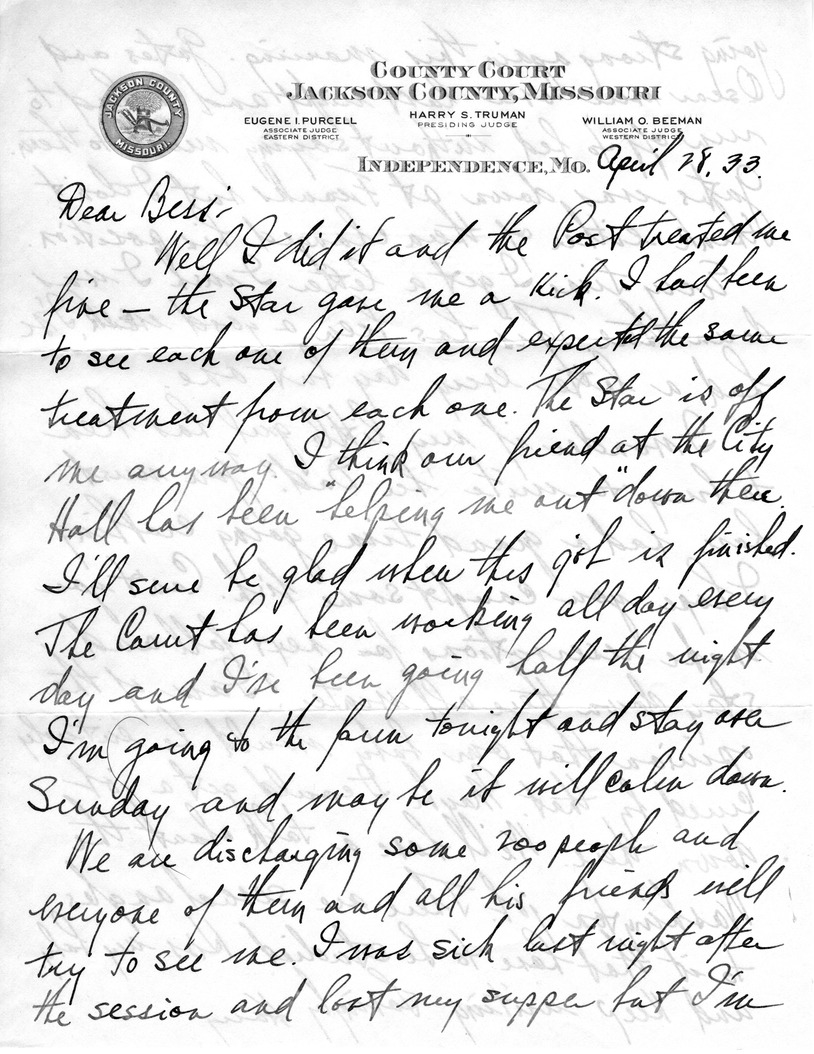 COUNTY COURT
JACKSON COUNTY, MISSOURI
JACKSON COUNTY
MISSOURI.
EUGENE I. PURCELL
ASSOCIATE JUDGE
EASTERN DISTRICT
HARRY S. TRUMAN
PRESIDING JUDGE
WILLIAM O. BEEMAN
ASSOCIATE JUDGE
WESTERN DISTRICT
INDEPENDENCE, MO. April 28, 33.
Dear Bess:
Well I did it and the Post treated me
fine — the Star gave me a kick. I had been
to see each one of them and expected the same
treatment from each one. The Star is off
me anyway. I think our friend at the City
Hall has been "helping me out" down there.
I'll sure be glad when this job is finished.
The Court has been working all day every
day and I've been going half the night
I'm going to the farm tonight and stay over
Sunday and maybe it will calm down.
We are discharging some 200 people and
everyone of them and all his friends will
try to see me. I was sick last night after
the session and lost my supper but I'm